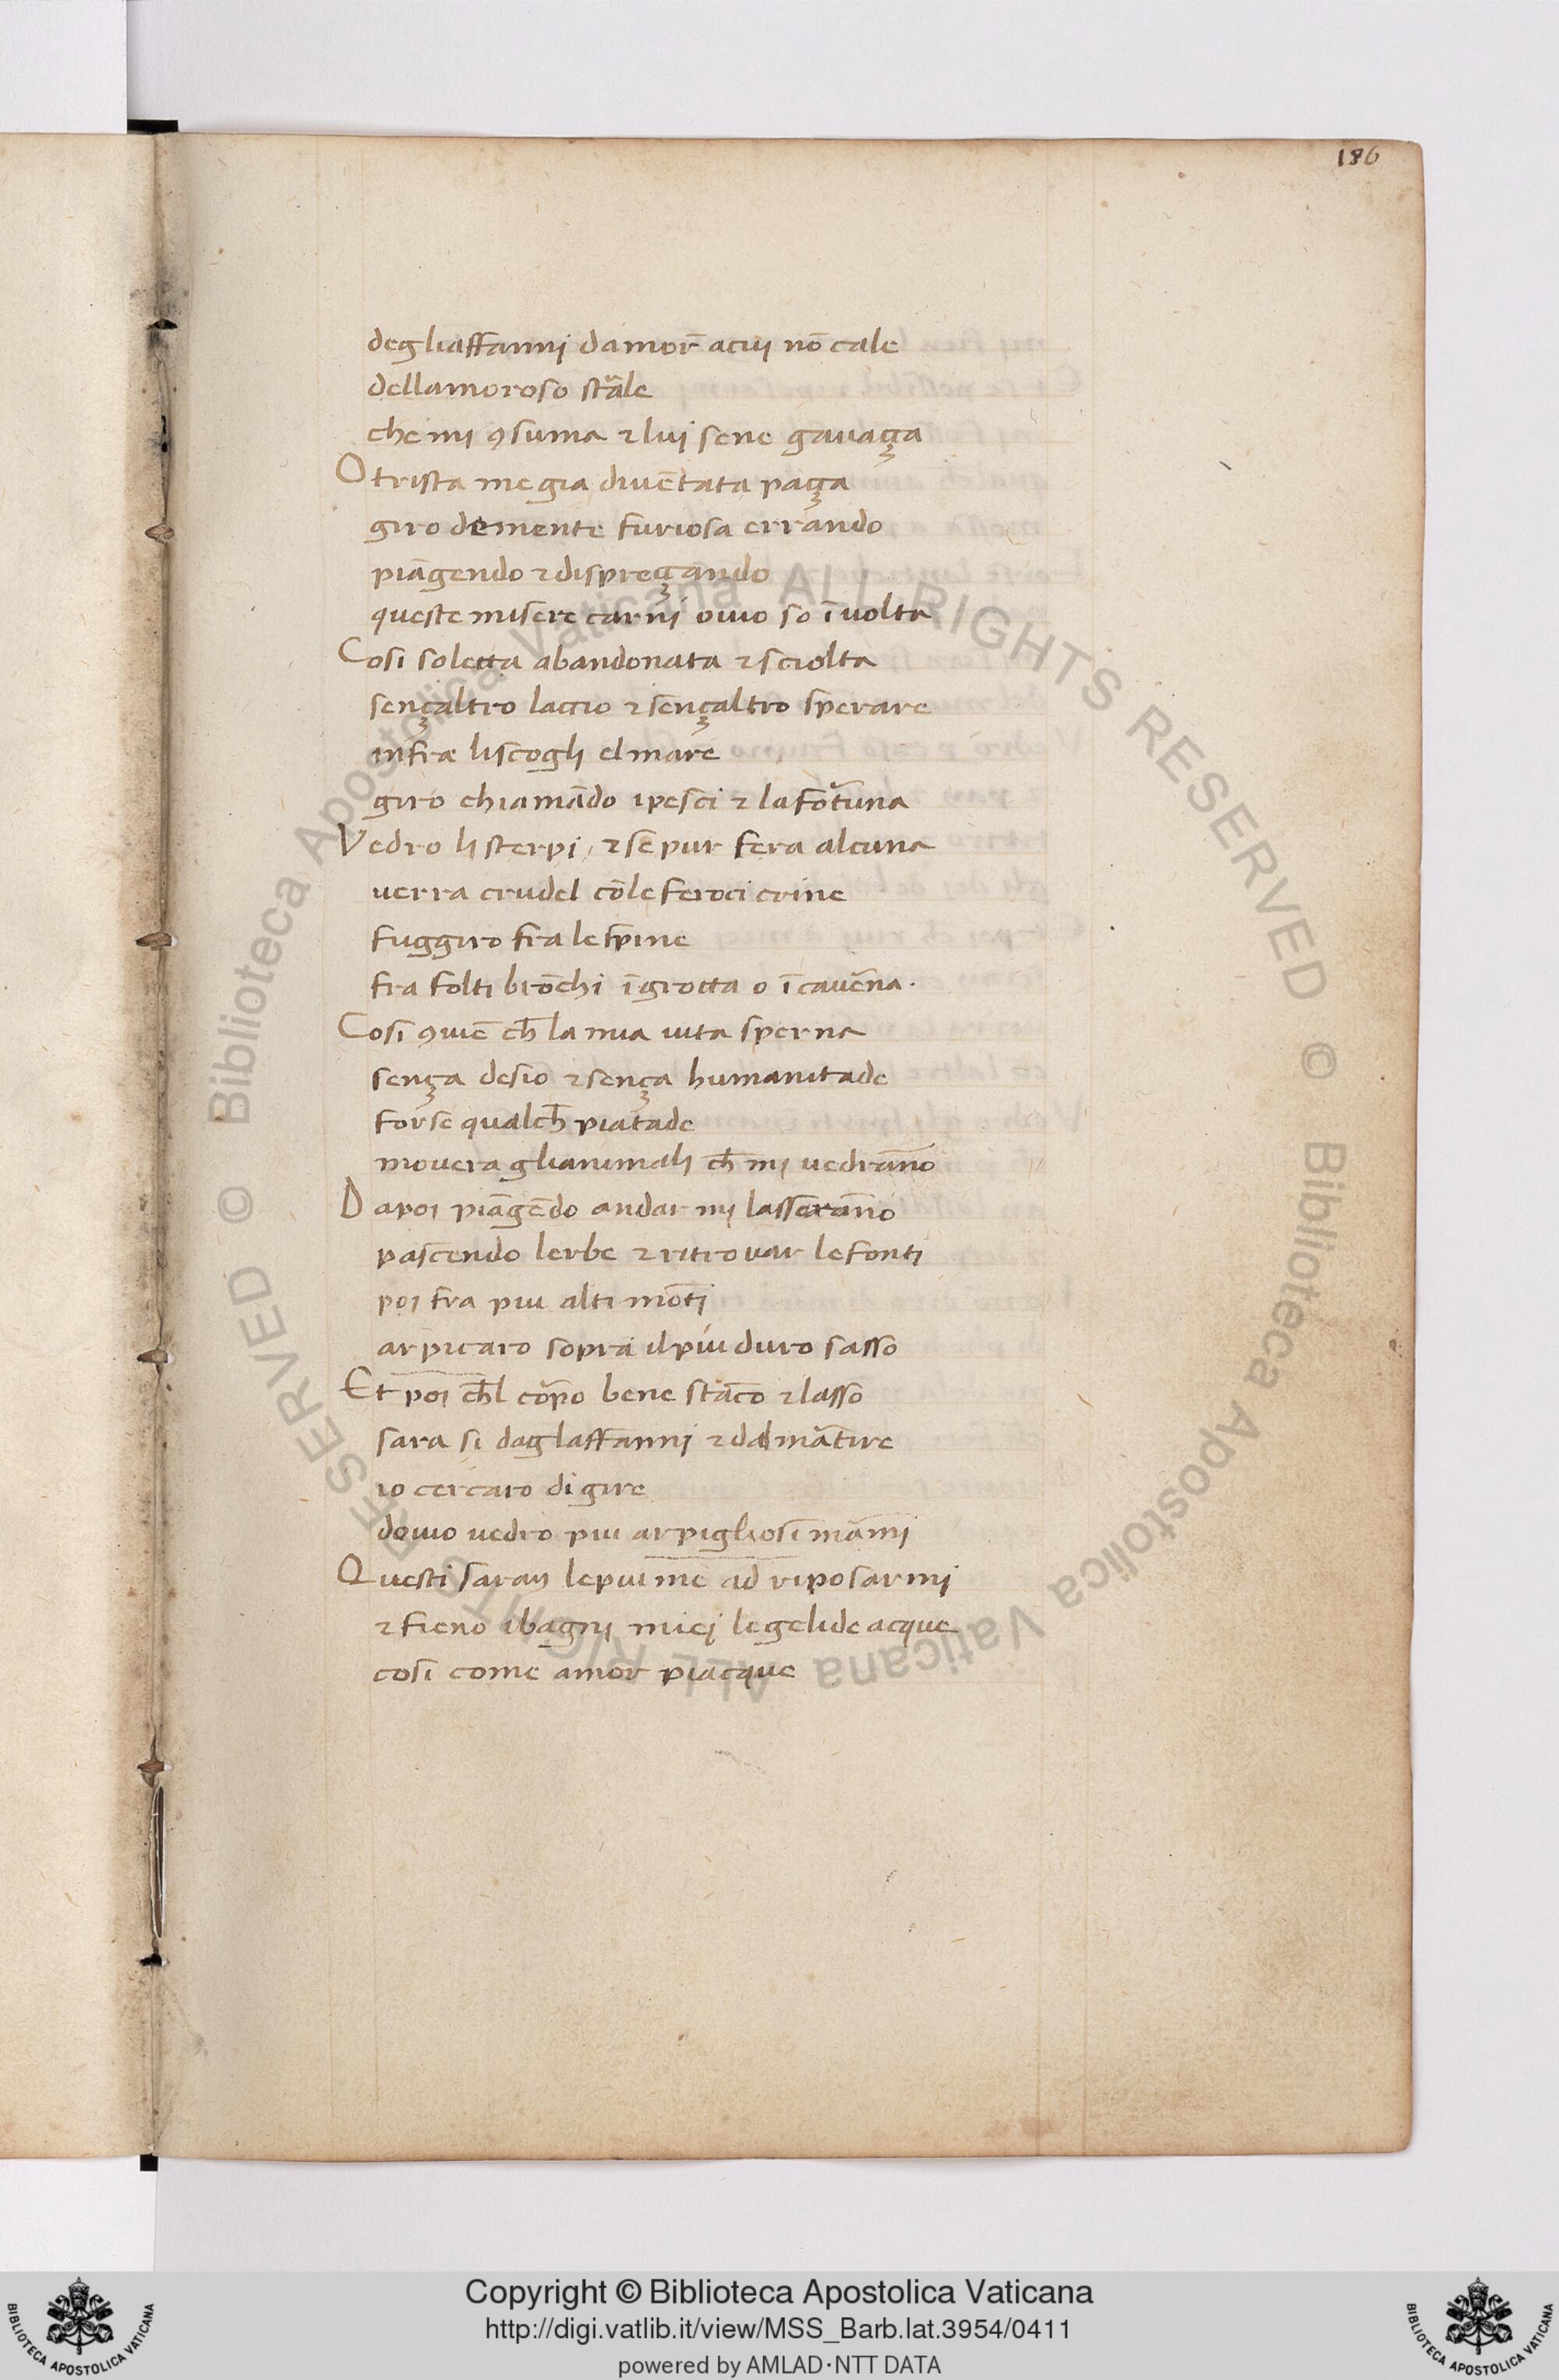 186
degliaffanni damor̄ acui nō cale
dellamoroso str̄ale
che mi ꝯsuma ⁊ lui sene gauaça
O trista me gia diuētata paça
giro demente furiosa errando
piāgendo ⁊ dispreçando
queste misere carni ouio so īuolta
Cosi soletta abandonata ⁊ sciolta
sençaltro laccio ⁊ sençaltro sperare
infra liscogli elmare
giro chiamādo ipesci ⁊ lafortuna
Vedro li sterpi / ⁊ se pur fera alcuna
uerra crudel cōle feroci crine
fuggiro fra le spine
fra folti brōchi ī grotta o ī cauerna.
Cosi ꝯuiē ch̄ la mia uita sperna
sença desio ⁊ sença humanitade
forse qualch̄ piatade
mouera glianimali ch̄ mi uedrāno
Dapoi piāgēdo andar mi lasserāno
pascendo lerbe ⁊ ritrouar le fonti
poi fra piu alti mōti
arpicaro sopra ilpiu duro sasso
Et poi ch̄l corpo bene stāco ⁊ lasso
sara si daglaffanni ⁊ dalmartire
io cercaro di gire
douio uedro piu arpigliosi marmi
Questi saran lepiume ad riposarmi
⁊ fieno ibagni miej le gelide acque
cosi come amor piacque
© Biblioteca Apostolica Vaticana ALL RIGHTS RESERVED
© Biblioteca Apostolica Vaticana ALL RIGHTS RESERVED
Copyright © Biblioteca Apostolica Vaticana
http://digi.vatlib.it/view/MSS_Barb.lat.3954/0411
powered by AMLAD·NTT DATA
BIBLIOTECA APOSTOLICA VATICANA
BIBLIOTECA APOSTOLICA VATICANA